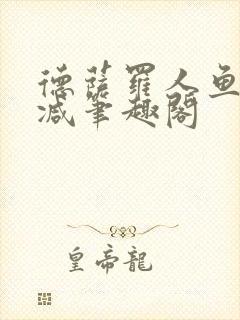 德薩羅人魚
減筆趣閣
皇帝龍